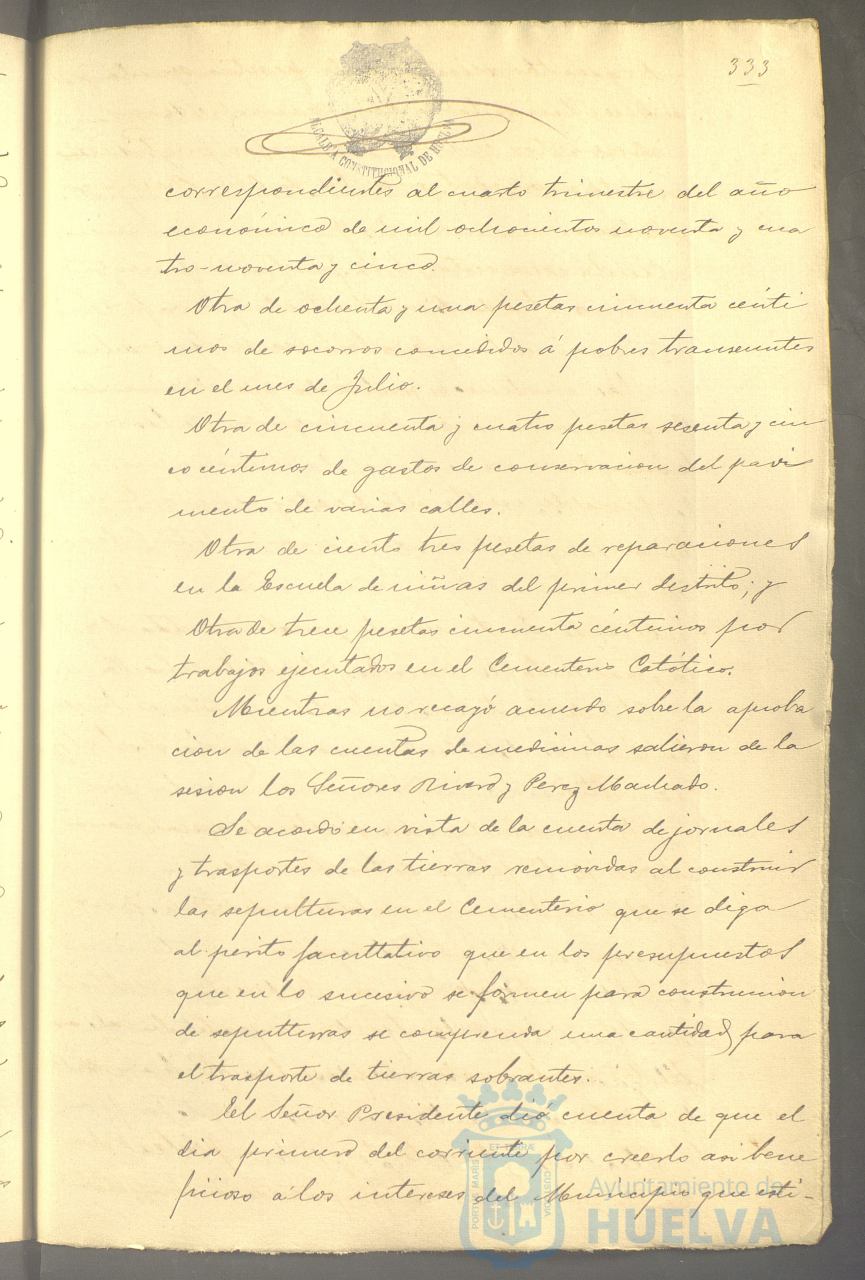 333
ALCALDIA CONSTITUCIONAL DE HUELVA
correspondientes al cuarto trimestre del año
económico de mil ochocientos noventa y cua
tro-noventa y cinco.
Otra de ochenta y una pesetas cincuenta cénti
mos de socorros concedidos á pobres transeuntes
en el mes de Julio.
Otra de cincuenta y cuatro pesetas sesenta y cin
co céntimos de gastos de conservacion del pavi
mento de varias calles.
Otra de ciento tres pesetas de reparaciones
en la Escuela de niñas del primer distrito; y
Otra de trece pesetas cincuenta céntimos por
trabajos ejecutados en el Cementerio Católico.
Mientras no recayó acuerdo sobre la aproba
cion de las cuentas de medicinas salieron de la
sesion los Señores Rivero y Perez Machado.
Se acordó en vista de la cuenta de jornales
y trasportes de las tierras removidas al construir
las sepulturas en el Cementerio que se diga
al perito facultativo que en los presupuestos
que en lo sucesivo se formen para construccion
de sepulturas se comprenda una cantidad para
el trasporte de tierras sobrantes.
El Señor Presidente dió cuenta de que el
dia primero del corriente por creerlo asi bene
ficioso á los intereses del Municipio que esti-
PORTUS MARIS ET TERRÆ CUSTODIA
Ayuntamiento de
HUELVA